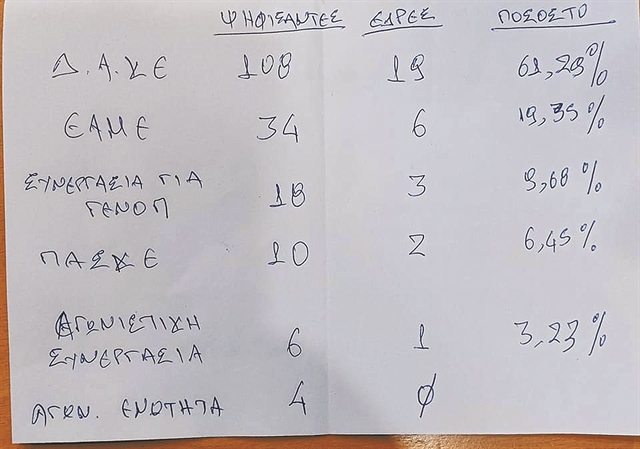 ΨΗΦΙΣΑΝΤΕΣ ΕΔΡΕΣ ΠΟΣΟΣΤΟ
Δ.Α.Κ.Ε 108 19 61,29%
ΕΑΜΕ 34 6 19,35%
ΣΥΝΕΡΓΑΣΙΑ ΓΙΑ
ΓΕΝΟΠ 18 3 9,68%
ΠΑΣΚΕ 10 2 6,45%
ΑΓΩΝΙΣΤΙΚΗ
ΣΥΝΕΡΓΑΣΙΑ 6 1 3,23%
ΑΓΩΝ. ΕΝΟΤΗΤΑ 4 0